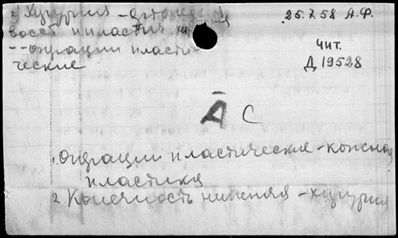 2 Хирургия -
восст и пластич
-- операции пласти-
ческие
25.X.58 А.Ф.
Чит.
Д 19528
А С
1. Операции пластические - кожная
пластика
2 Конечность нижняя - хирургия